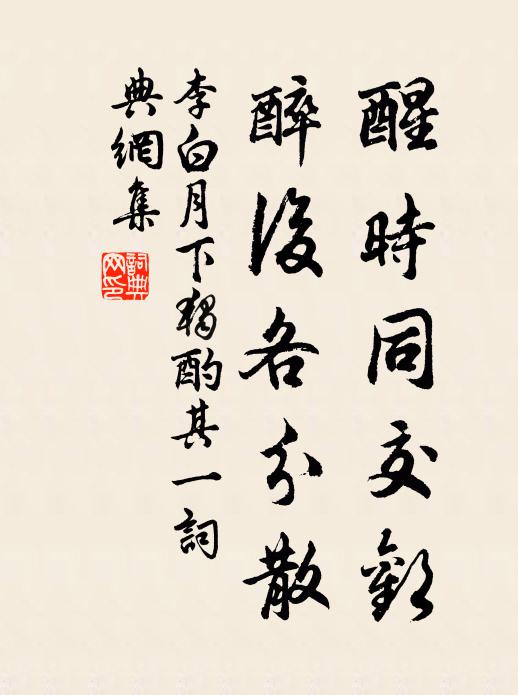 醒時同交歡
醉後各分散
李白月下獨酌其一詞
典網集
詞典
网印